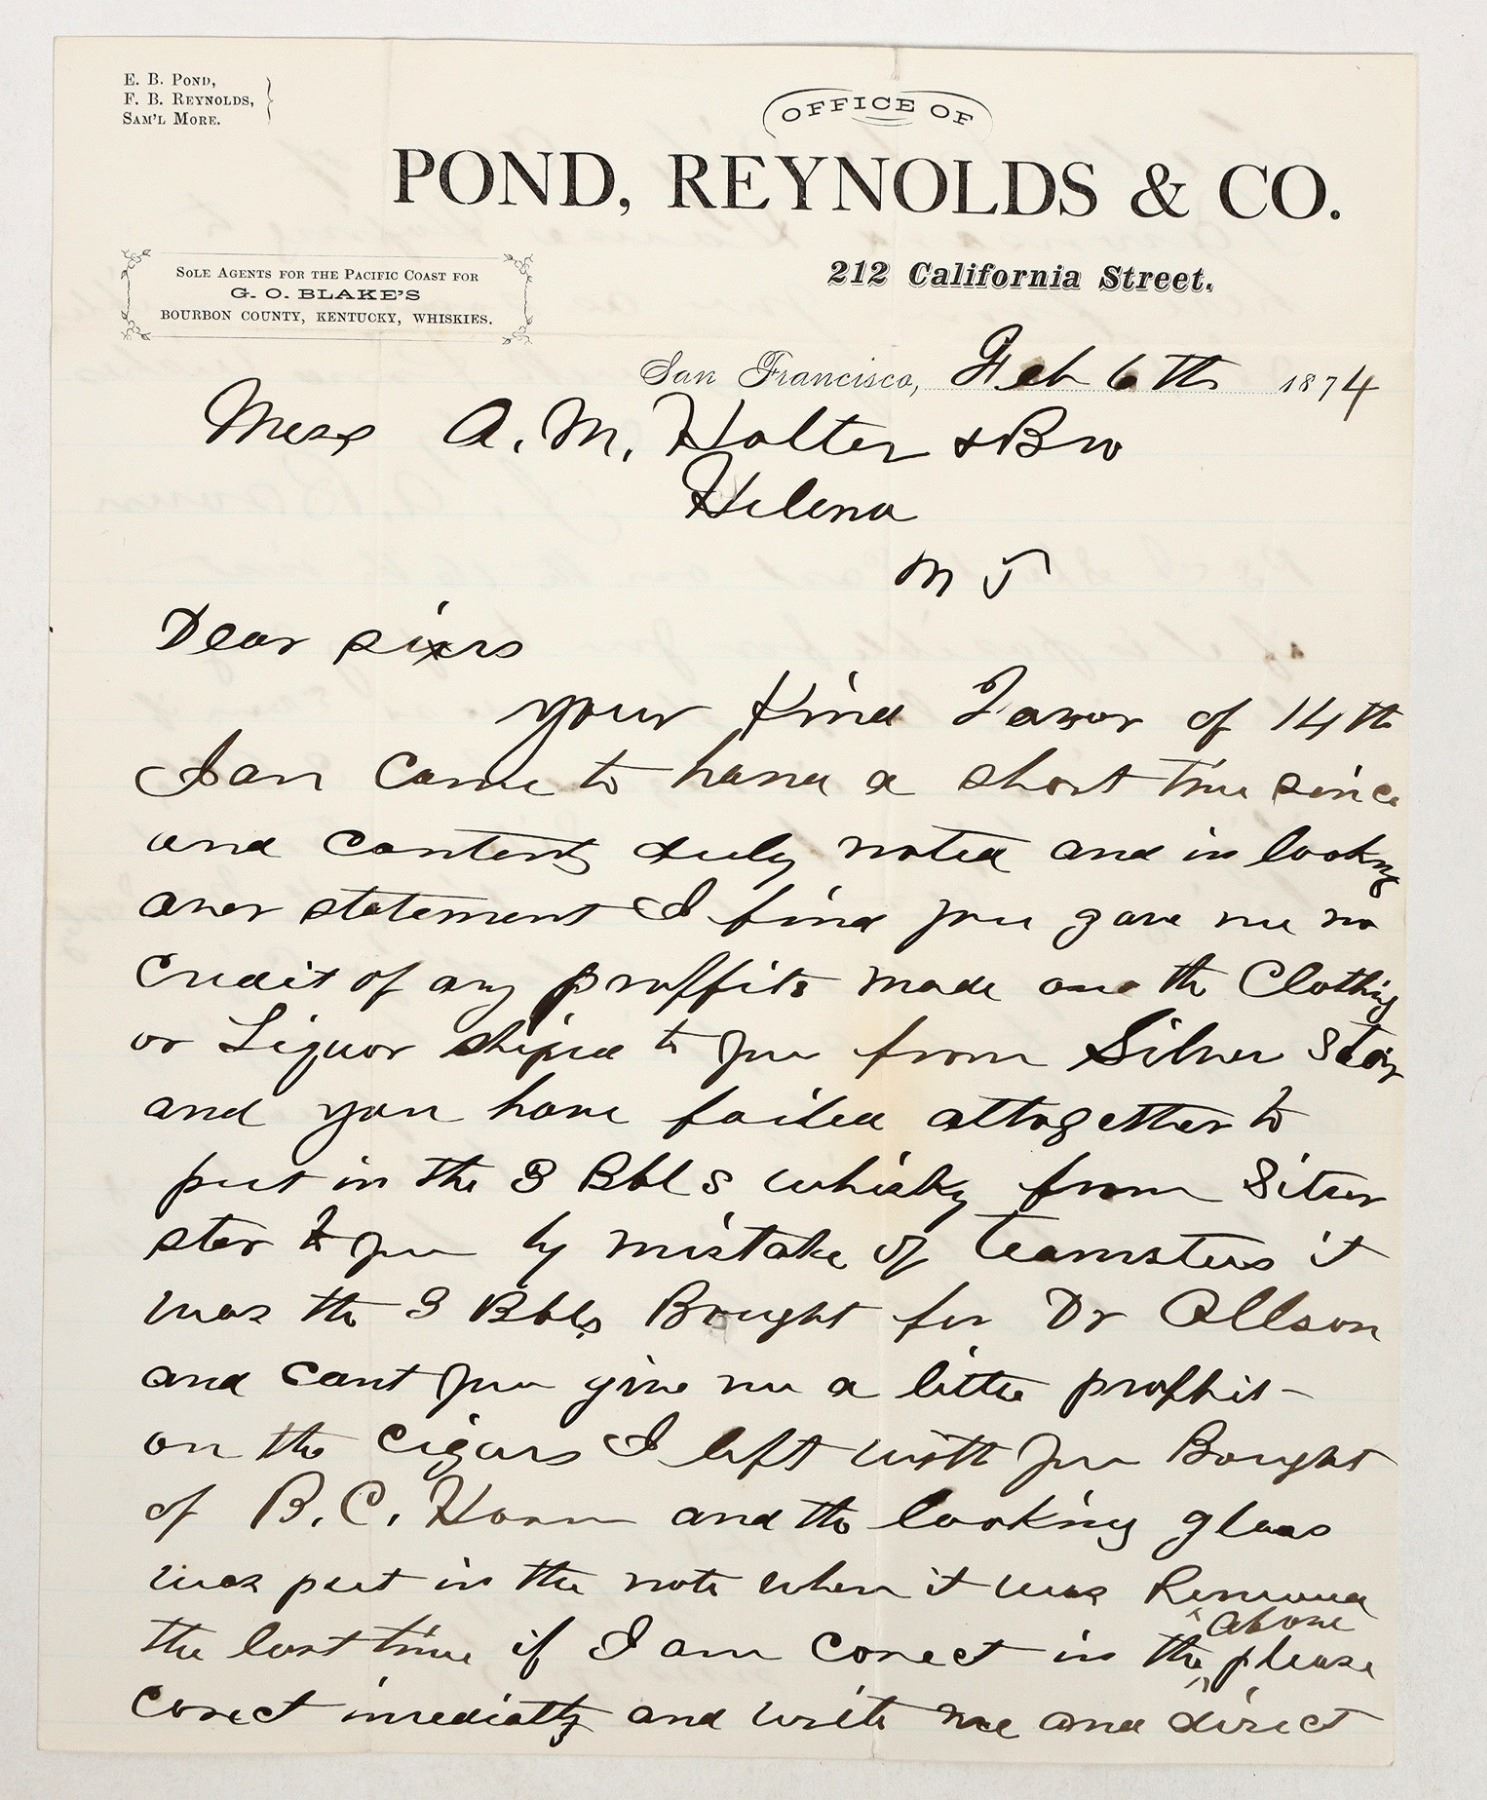 E. B. Pond,
F. B. Reynolds,
Sam'l More.
OFFICE OF
POND, REYNOLDS & CO.
212 California Street.
Sole Agents for the Pacific Coast for
G. O. BLAKE'S
BOURBON COUNTY, KENTUCKY, WHISKIES.
San Francisco, Feb 6th 1874
Mess A. M. Holter & Bro
Helena
M T
Dear sirs
your kind Favor of 14th
Jan Came to hand a short time since
and contents duly noted and in looking
over statement I find you gave me no
Credit of any proffits made one the Clothing
or Liquor shiped to you from Silver Star
and you have failed altogether to
put in the 3 Bbls whisky from Silver
ster to you by mistake of teamsters it
was the 3 Bbls Bought for Dr Allson
and cant you give me a little proffit
on the cigars I left with you Bought
of B. C. Horn and the looking glass
was put in the note when it was Renewed
the last time if I am corect in the above please
corect imediatly and write me and direct